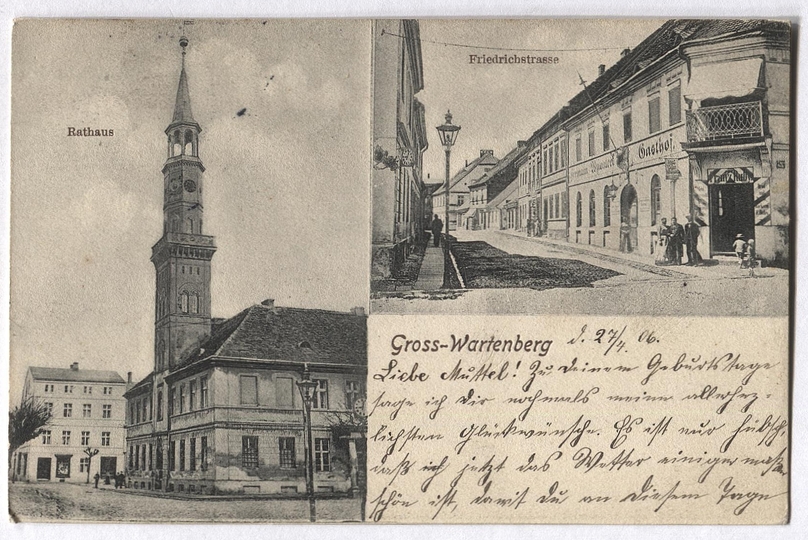 Rathaus
Friedrichstrasse
Gasthof.
Gross-Wartenberg
d. 27/4. 06.
Liebe Muttel! Zu Deinem Geburtstage
sage ich Dir nochmals meine allerherz-
lichsten Glückwünsche. Es ist nur hübsch,
daß jetzt das Wetter einigermaßen
schön ist, damit Du an diesem Tage